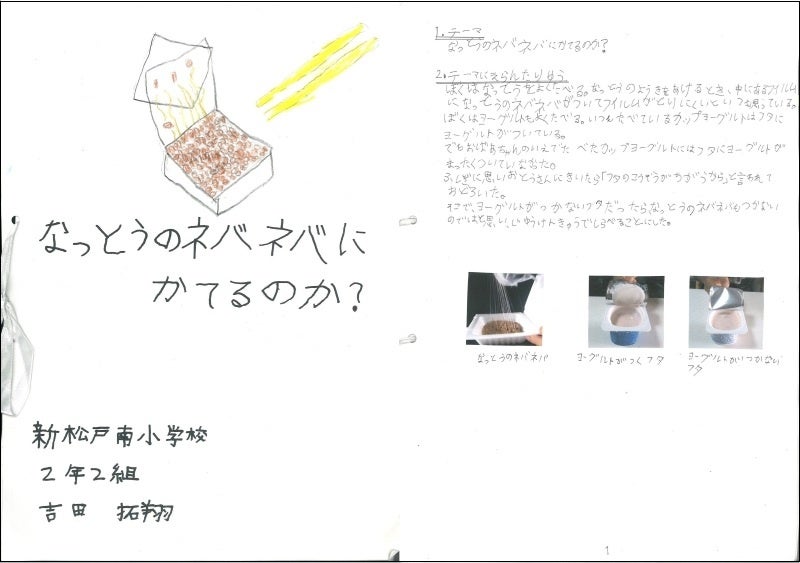 なっとうのネバネバに
かてるのか?
新松戸南小学校
2年2組
吉田 拓翔
1.テーマ
なっとうのネバネバにかてるのか?
2.テーマにえらんだりゆう
ぼくはなっとうをよくたべる。なっとうのようきをあけるとき、中にあるフイルム
になっとうのネバネバがついてフイルムがとりにくいといつも思っている。
ぼくはヨーグルトもよくたべる。いつもたべているカップヨーグルトはフタに
ヨーグルトがついている。
でもおばあちゃんのいえでたべたカップヨーグルトにはフタにヨーグルトが
まったくついていなかった。
ふしぎに思いおとうさんにきいたら「フタのこうぞうがちがうから」と言われて
おどろいた。
そこで、ヨーグルトがつかないフタだったら、なっとうのネバネバもつかない
のではと思い、じゆうけんきゅうでしらべることにした。
なっとうのネバネバ
ヨーグルトがつくフタ
ヨーグルトがつかない
フタ
1